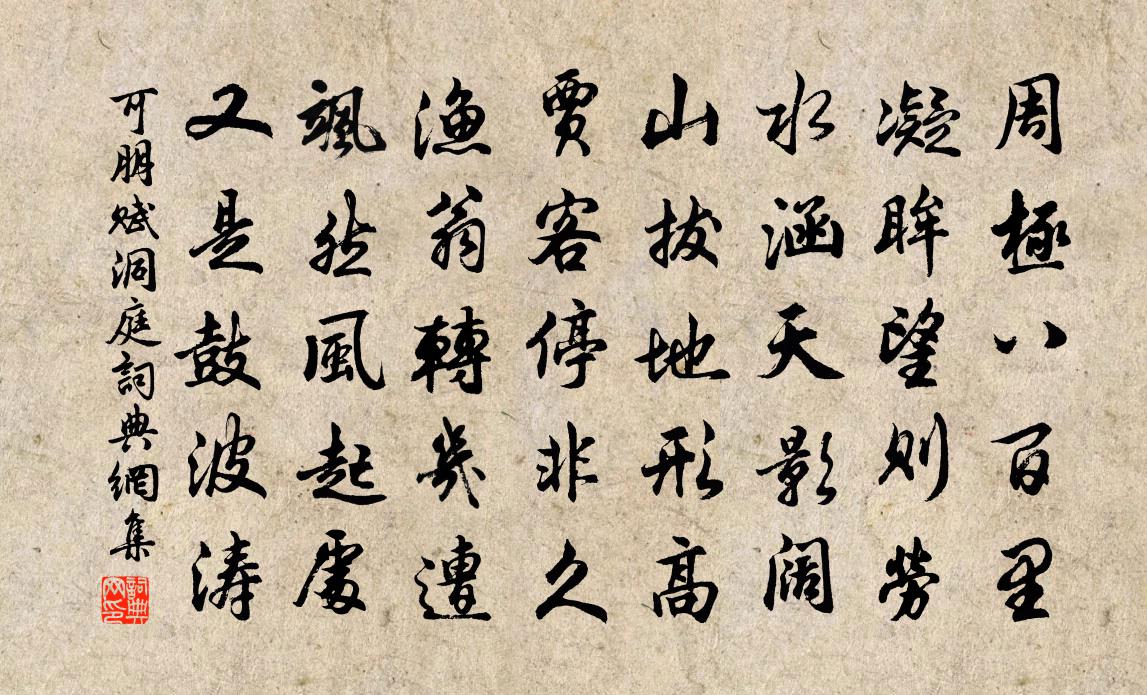 周極八百里
凝眸望則勞
水涵天影闊
山拔地形高
賈客停非久
漁翁轉幾遭
颯然風起處
又是鼓波濤
可朋賦洞庭詞典網集
詞典網印